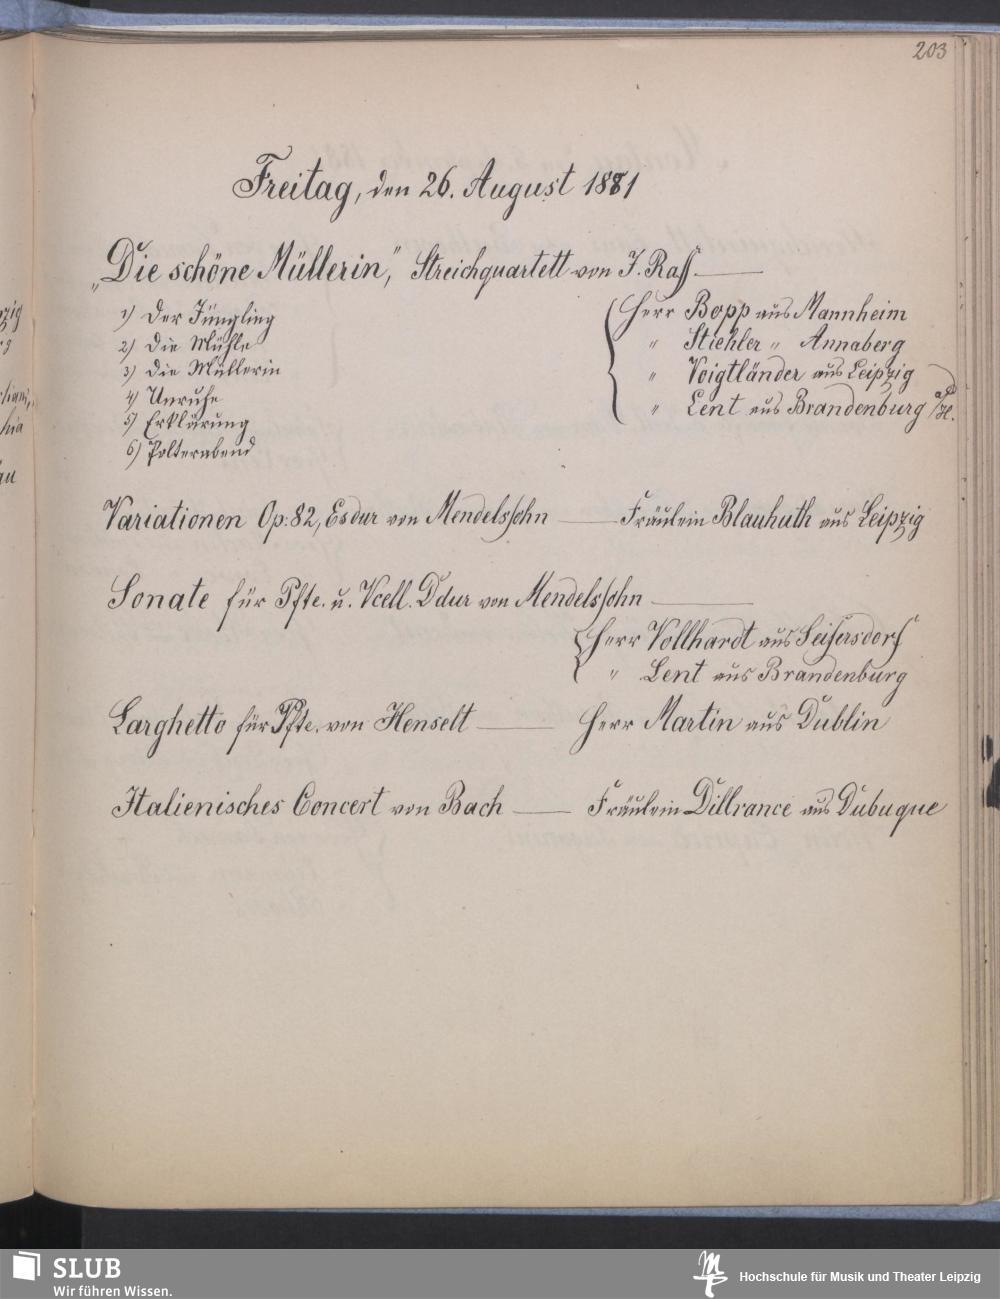 203
Freitag, den 26. August 1881
„Die schöne Müllerin," Streichquartett von J. Raff
1) Der Jüngling
2) Die Mühle
3) Die Müllerin
4) Unruhe
5) Erklärung
6) Polterabend
Herr Bopp aus Mannheim
" Stiehler " Annaberg
" Voigtländer aus Leipzig
" Lent aus Brandenburg a/H.
Variationen Op: 82, Esdur von Mendelssohn — Fräulein Blauhuth aus Leipzig
Sonate für Pfte. u. Vcell. Ddur von Mendelssohn —
Herr Vollhardt aus Seifersdorf
" Lent aus Brandenburg
Larghetto für Pfte. von Henselt — Herr Martin aus Dublin
Italienisches Concert von Bach — Fräulein Dillrance aus Dubuque
SLUB
Wir führen Wissen.
Hochschule für Musik und Theater Leipzig